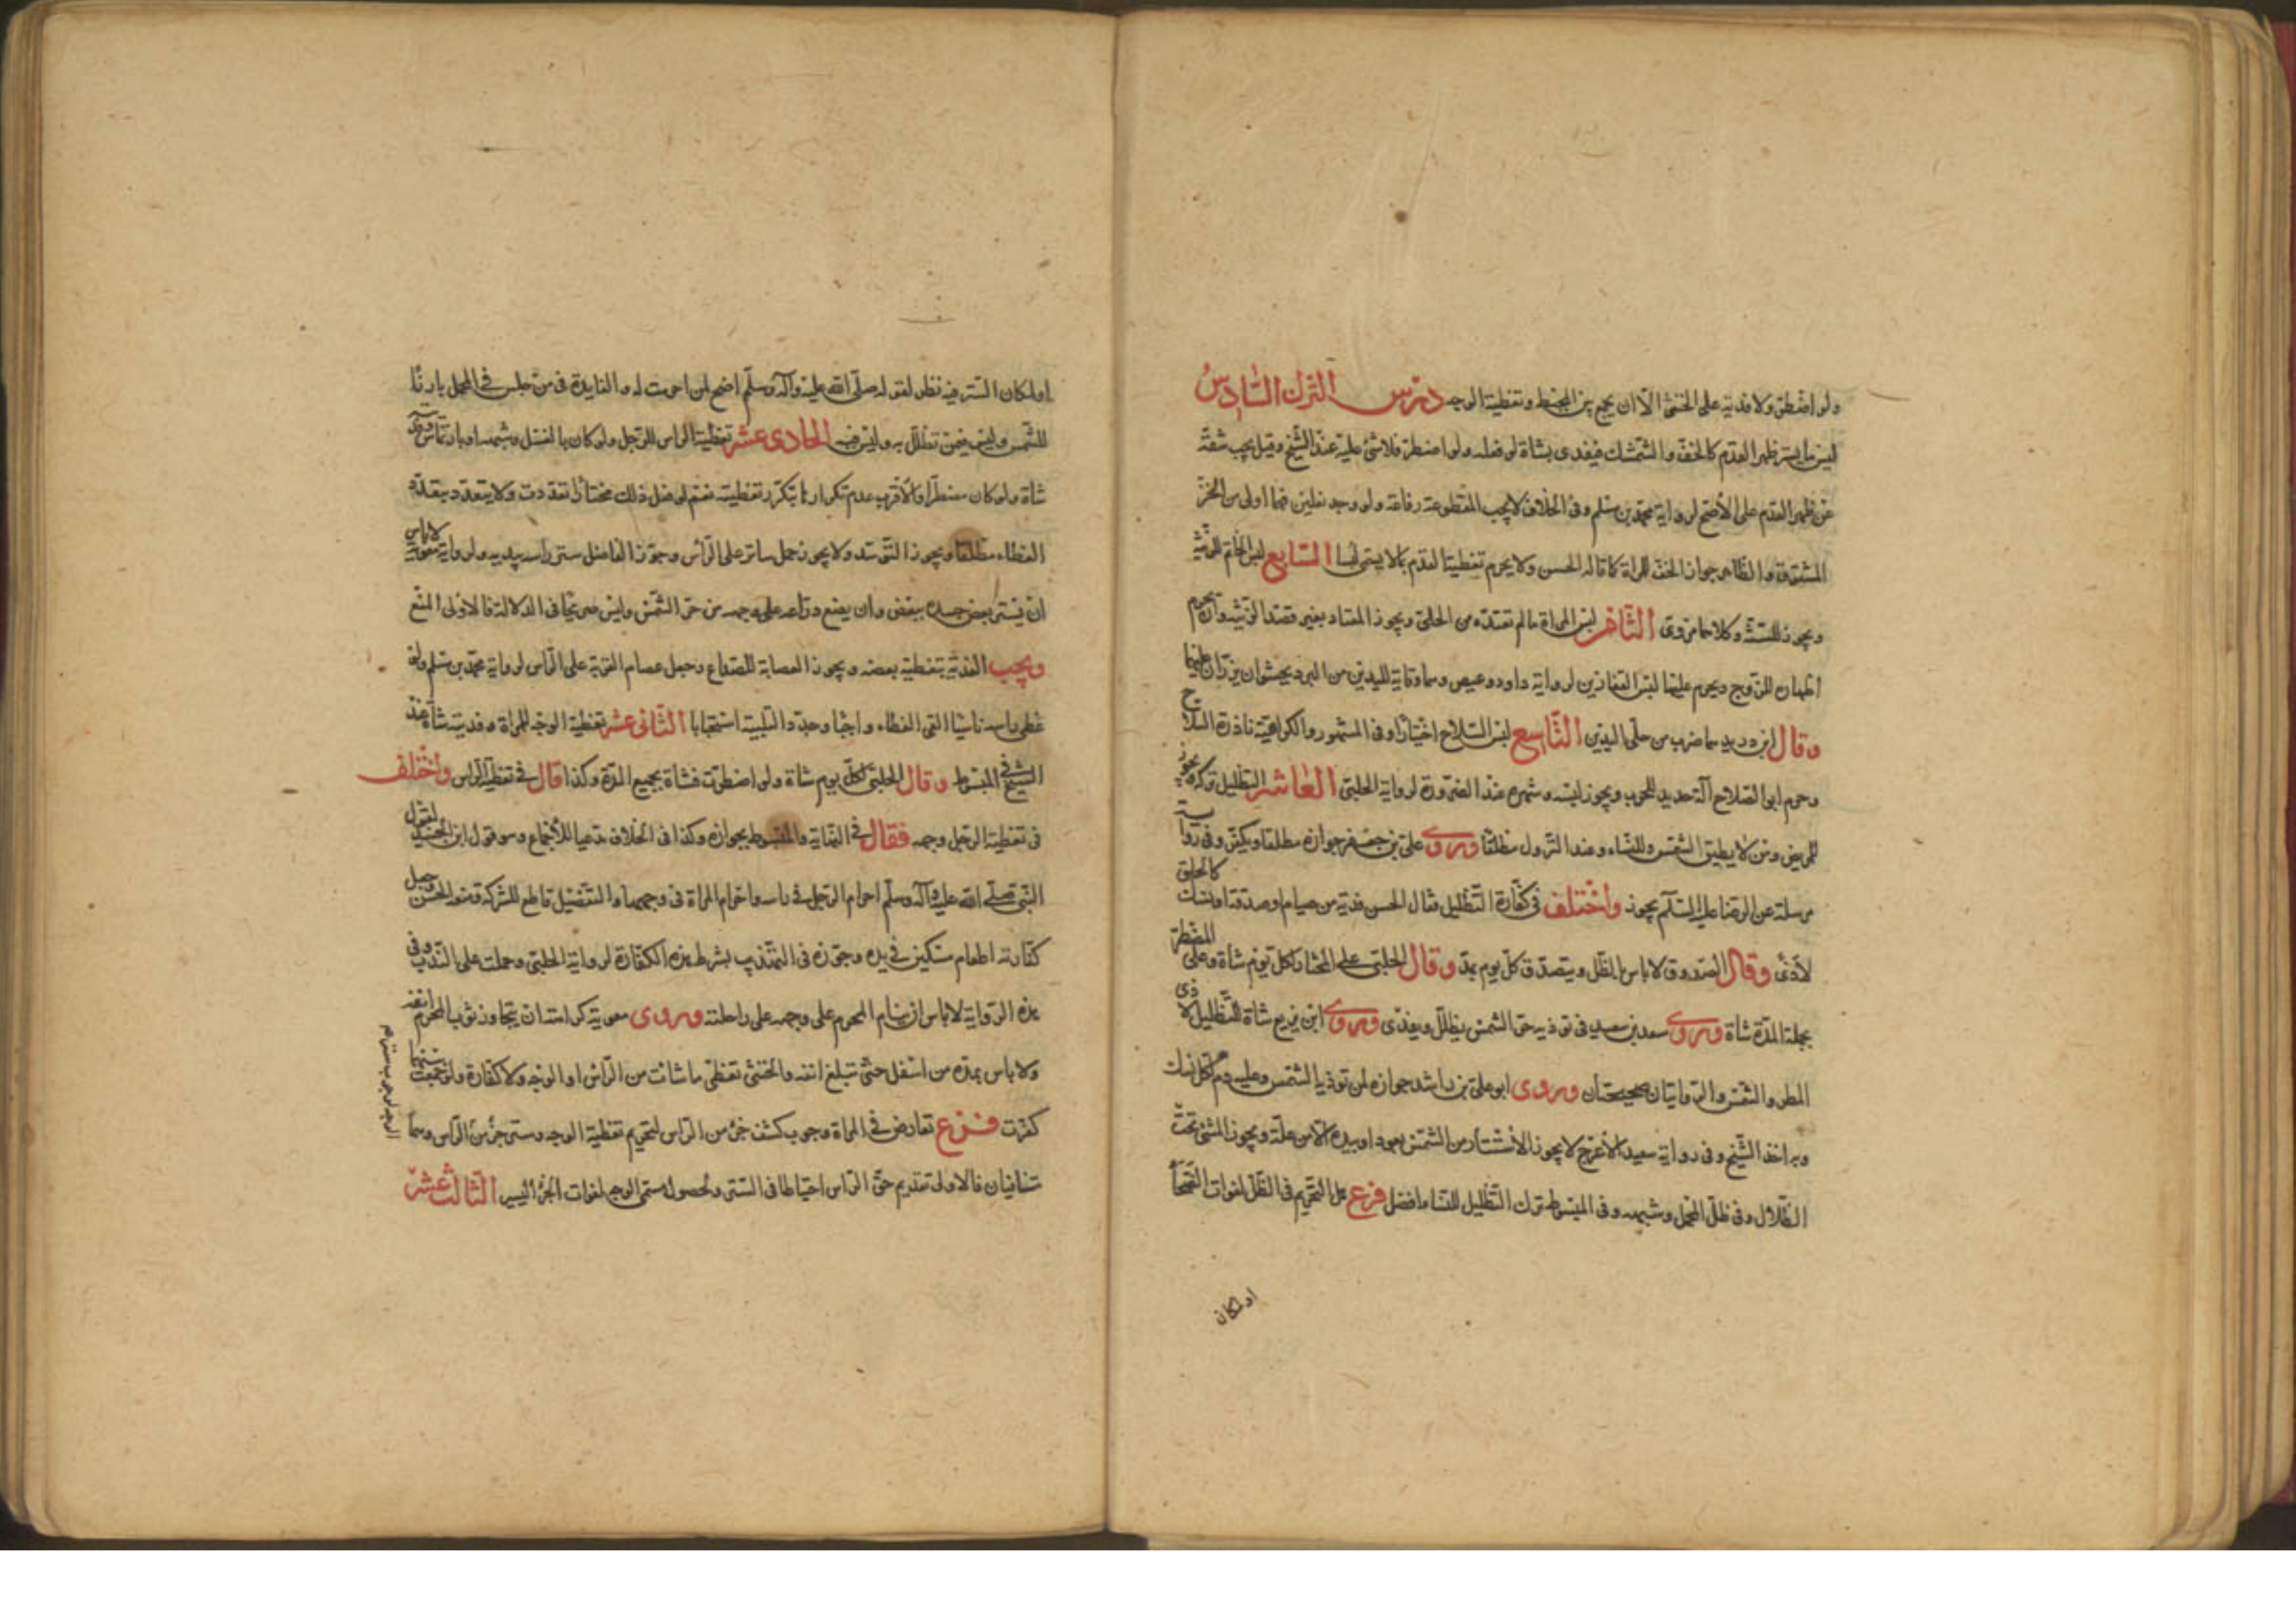 ولو اضطر ولا فدية على الخنثى الا ان يجمع بين المخيط وتغطية الوجه درس الترك السادس
لبس ما يستر ظهر القدم كالخف والشمشك فيفدى بشاة لو فعله ولو اضطر فلا شئ عليه عند الشيخ وقيل يجب شقه
عن ظهر القدم على الأصح لرواية محمد بن مسلم وفى الخلاف لا يجب المقطوعة رفاعة ولو وجد نعلين فهما اولى من الخف
المشقوق والظاهر جواز الخف للمراة كما قاله الحسن ولا يحرم تغطية القدم بما لا يسمى لبسا السابع لبس الخاتم للزينة
ويجوز للسنة وكلاهما مروى الثامن لبس المراة ما لم تعتده من الحلى ويجوز المعتاد بغير قصد الزينة وان يحرم
اظهاره للزوج ويحرم عليها لبس القفازين لرواية داود وعيص وهما وقاية لليدين من البرد يحشوان يزران عليهما
وقال ابن دريد هما ضرب من حلى اليدين التاسع لبس السلاح اختيارا وفى المشهور والكراهية نادرة السلاح
وحرم ابو الصلاح آلة حديد للحرب ويجوز لبسه وشهره عند الضرورة لرواية الحلبى العاشر التظليل تركه يجوز
للمريض ومن لا يطيق الشمس وللنساء وعند النزول مطلقا وروى على بن جعفر جوازه مطلقا ويكفر وفى رواية
مرسلة عن الرضا عليه السلام يجوز واختلف فى كفارة التظليل فقال الحسن فدية من صيام او صدقة او نسك كالحلق
لأذى وقال الصدوق لا باس بالظل ويتصدق كل يوم بمد وقال الحلبى على المختار لكل يوم شاة وعلى المضطر
بجملة المدة شاة وروى سعد بن سعيد فى توذيه حر الشمس يظلل ويفدى وروى ابن بزيع شاة لتظليل لأذى
المطر والشمس والروايتان صحيحتان وروى ابو على بن راشد جوازه لمن توذيه الشمس وعليه دم لكل نسك
وبه اخذ الشيخ وفى رواية سعيد الأعرج لا يجوز الاستتار من الشمس بعود او بيده الا من علة ويجوز المشى تحت
الظلال وفى ظل المحمل وشبهه وفى المبسوط ترك التظليل للنساء افضل فرع هل التحريم فى الظل لفوات الضحاء
او لمكان
او لمكان الستر فيه نظر لقوله صلى الله عليه وآله وسلم اضح لمن احرمت له والفايدة فى من جلس فى المحمل بارزا
للشمس وليس فيمن تظلل به وليس فيه الحادى عشر تغطية الراس للرجل ولو كان بالغسل وشبهه او بارتماس وفيه
شاة ولو كان مضطرا والأقرب عدم تكرارها بتكرر تغطيته نعم لو فعل ذلك مختارا تعددت ولا يتعدد بتعدد
الغطاء مطلقا ويجوز التوسد ولا يجوز حمل ساتر على الرأس وجوز الفاضل ستر راسه بيديه ولرواية معوية لا باس
ان يستر بعض جسده ببعض وان يضع ذراعه على وجهه من حر الشمس وليس صريحا فى الدلالة فالاولى المنع
ويجب الفدية بتغطية بعضه ويجوز العصابة للصداع وحمل عصام القربة على الراس لرواية محمد بن مسلم ولو
غطى راسه ناسيا القى الغطاء واجبا وجدد التلبية استحبابا الثانى عشر تغطية الوجه للمراة وفديته شاة عند
الشيخ فى المبسوط وقال الحلبى لكل يوم شاة ولو اضطرت فشاة بجميع المدة وكذا قال فى تغطية الراس واختلف
فى تغطية الرجل وجهه فقال فى النهاية والمبسوط بجوازه وكذا فى الخلاف مدعيا للأجماع وهو قول ابن الجنيد لقول
النبى صلى الله عليه وآله وسلم احرام الرجل فى راسه واحرام المراة فى وجهها والتفصيل قاطع للشركة ومنع الحسن وجعل
كفارته اطعام مسكين فى يده وجوزه فى التهذيب بشرط هذه الكفارة لرواية الحلبى وحملت على الندب وفى
هذه الرواية لا باس ان ينام المحرم على وجهه على راحلته وروى معوية كراهة ان يتجاوز ثوب المحرم انفه
ولا باس بمده من اسفل حتى تبلغ انفه والخنثى تغطى ما شائت من الراس او الوجه ولا كفارة ولو جمعت بينهما
كفرت فرع تعارض فى المراة وجوب كشف جزء من الراس لتحريم تغطية الوجه وستر جزء من الراس وهما
متنافيان فالاولى تقديم حق الراس احتياطا فى الستر ولحصول مسمى الوجه لفوات الجزء اليسير الثالث عشر